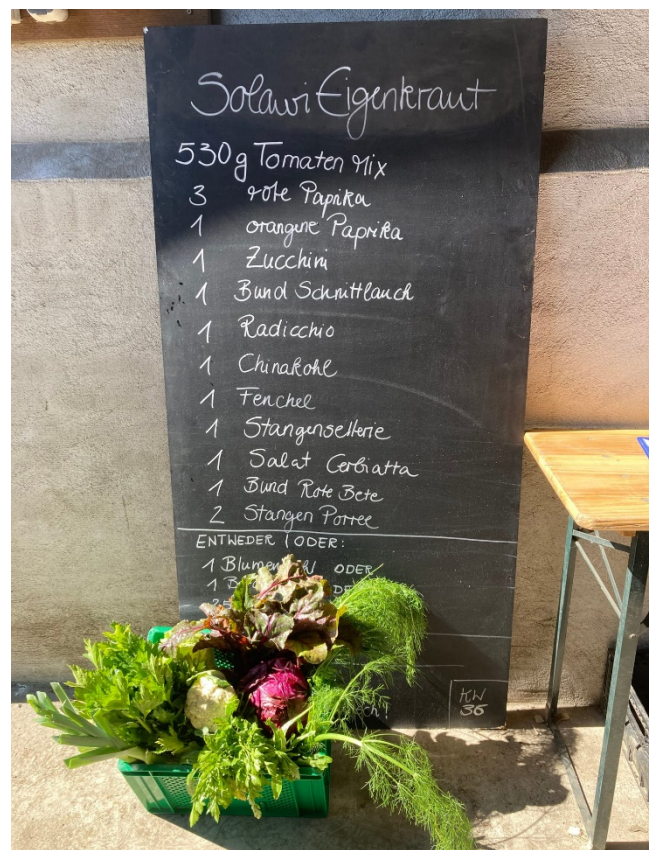 Solawi Eigenkraut
530g Tomaten Mix
3 rote Paprika
1 orangene Paprika
1 Zucchini
1 Bund Schnittlauch
1 Radicchio
1 Chinakohl
1 Fenchel
1 Stangensellerie
1 Salat Cerbiatta
1 Bund Rote Bete
2 Stangen Porree
ENTWEDER | ODER:
1 ODER
1
KW
36